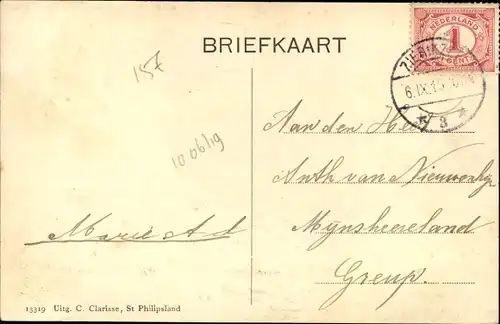 NEDERLAND
1
CENT
BRIEFKAART
6.IX.15
3
157
10 06/19
Aan den Heer
Anth van Nieuwenhz
Mynsheereland
Greup.
Marie A d
13319 Uitg. C. Clarisse, St Philipsland